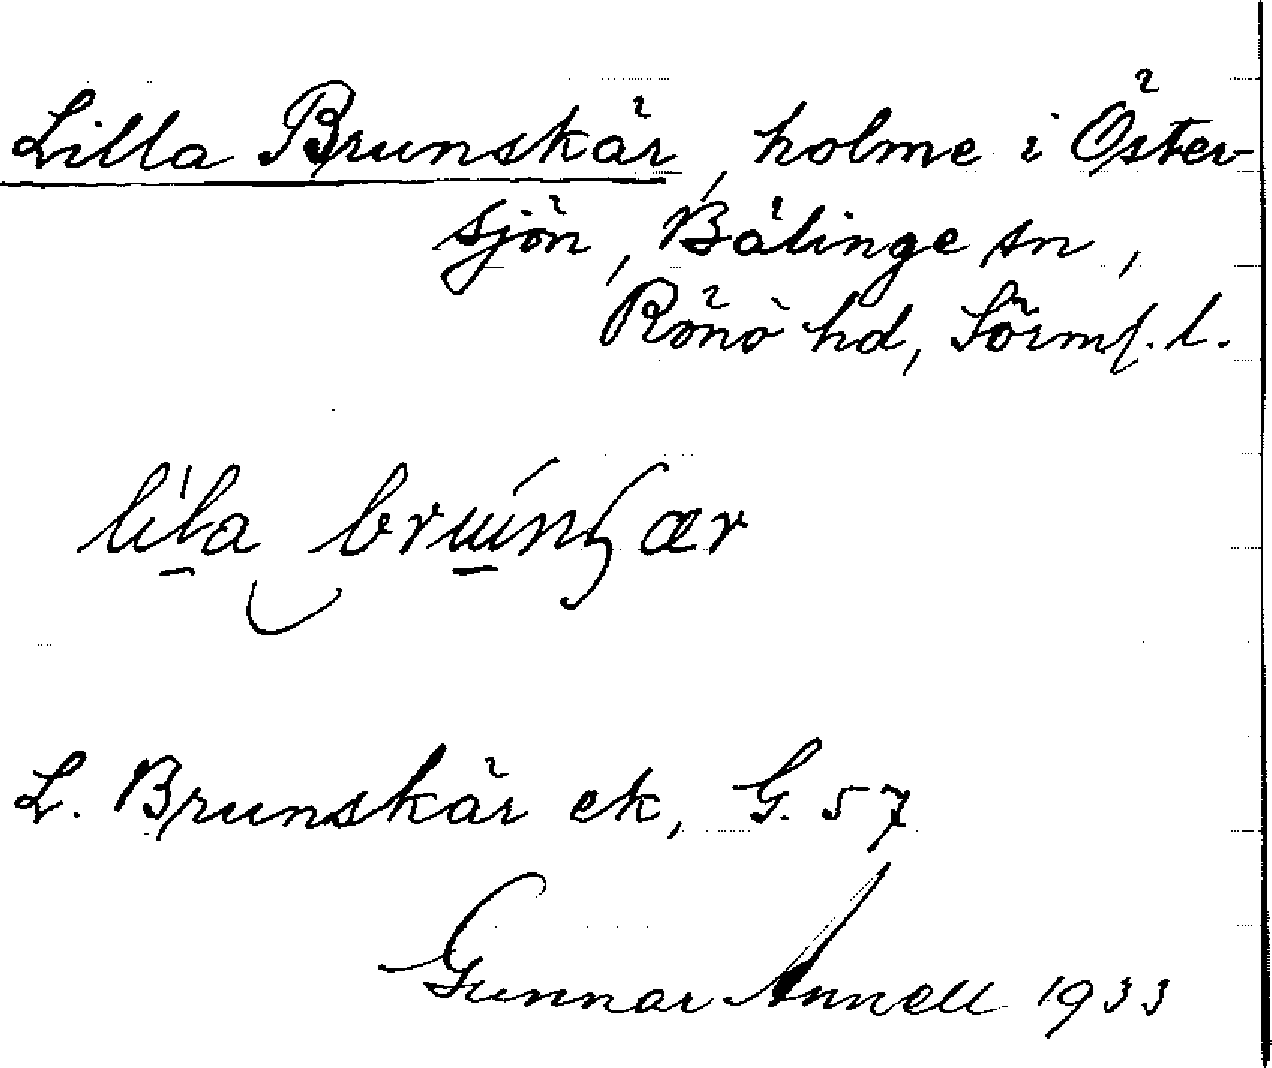 Lilla Brunskär, holme i Öster-
sjön, Bälinge sn,
Rönö hd, Södml. l.
L. Brunskär ek, G. 57
Gunnar Annell 1933